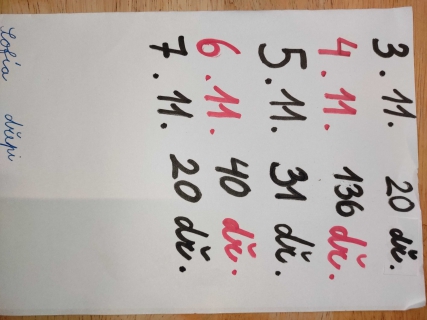 Sofia dřepi
3.11. 20 dř.
4.11. 136 dř.
5.11. 31 dř.
6.11. 40 dř.
7.11. 20 dř.